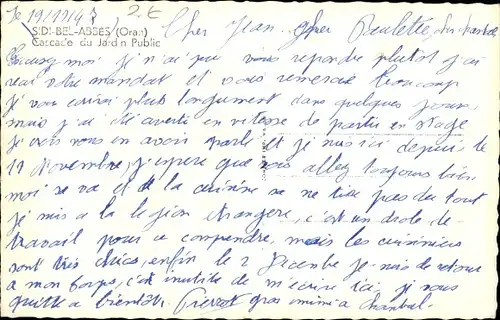 le 19/11/47 2E
SIDI-BEL-ABBÈS (Oran)
Cascade du Jardin Public
Cher Jean, cher Paulette,
Excusez moi si je n'ai pu vous repondre plutot j'ai
recu votre mandat et vous remercie beaucoup
je vous ecrirai plus longument dans quelques jours,
mais j'ai été averti en vitesse de partir en stage
je crois vous en avoir parlé et je suis ici depuis le
19 Novembre, j'espere que vous allez toujours bien
moi se va et de la cuisine sa ne tire pas du tout
je suis a la legion etrangere, c'est un drole de
travail pour ce comprendre, mais les cuisiniers
sont très chics, enfin le 2 Decembre je suis de retour
a mon corps, c'est inutile de m'ecrire ici, je vous
quitte a bientôt. Pierrot gros mimi a Chantal.